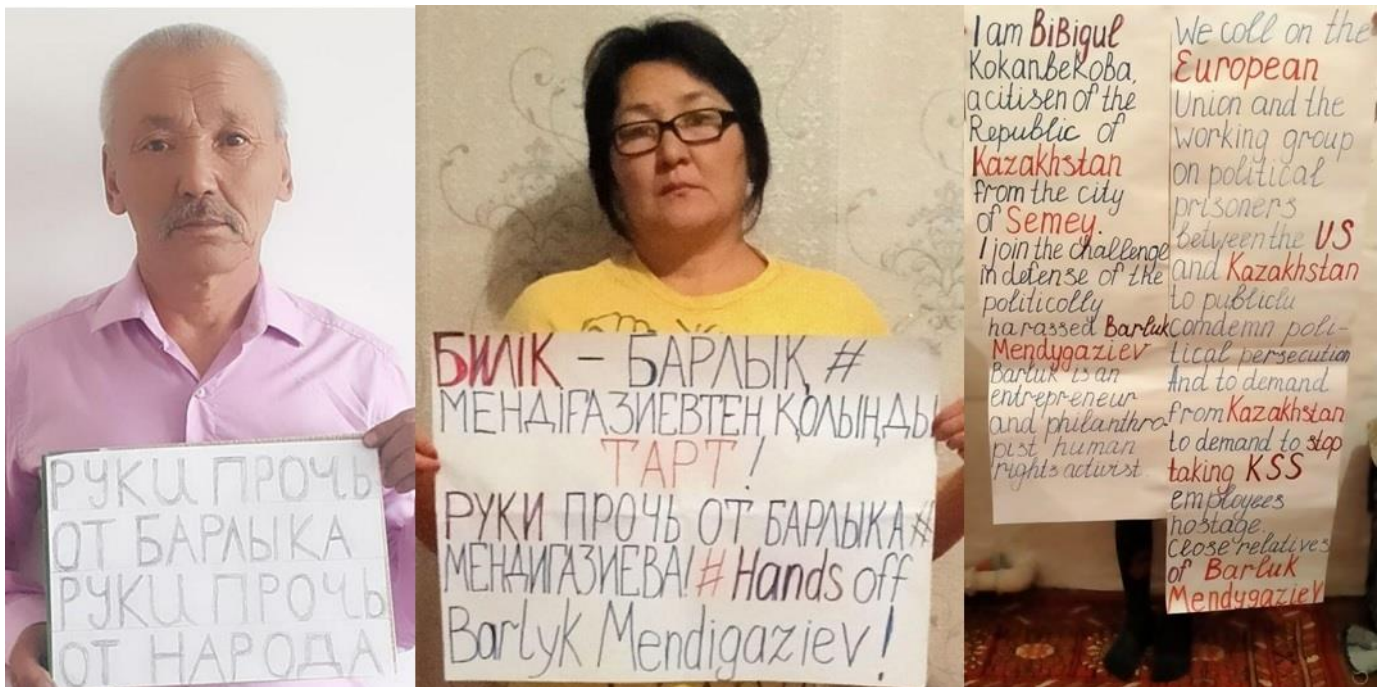 РУКИ ПРОЧЬ
ОТ БАРЛЫКА
РУКИ ПРОЧЬ
ОТ НАРОДА
БИЛІК – БАРЛЫҚ #
МЕНДІҒАЗИЕВТЕН ҚОЛЫҢДЫ
ТАРТ !
РУКИ ПРОЧЬ ОТ БАРЛЫКА #
МЕНДИГАЗИЕВА! # Hands off
Barlyk Mendigaziev !
I am BiBigul
Kokanbekoba,
a citisen of the
Republic of
Kazakhstan
from the city
of Semey.
I join the challenge
in defense of the
politicolly
harassed Barluk
Mendygaziev
Barluk is an
entrepreneur
and philanthro
pist human
rights activist.
We coll on the
European
Union and the
working group
on political
prisoners
between the US
and Kazakhstan
to publiclu
comdemn poli-
tical persecution
And to demand
from Kazakhstan
to demand to stop
taking KSS
employees
hostage.
Close relatives
of Barluk
Mendygaziev